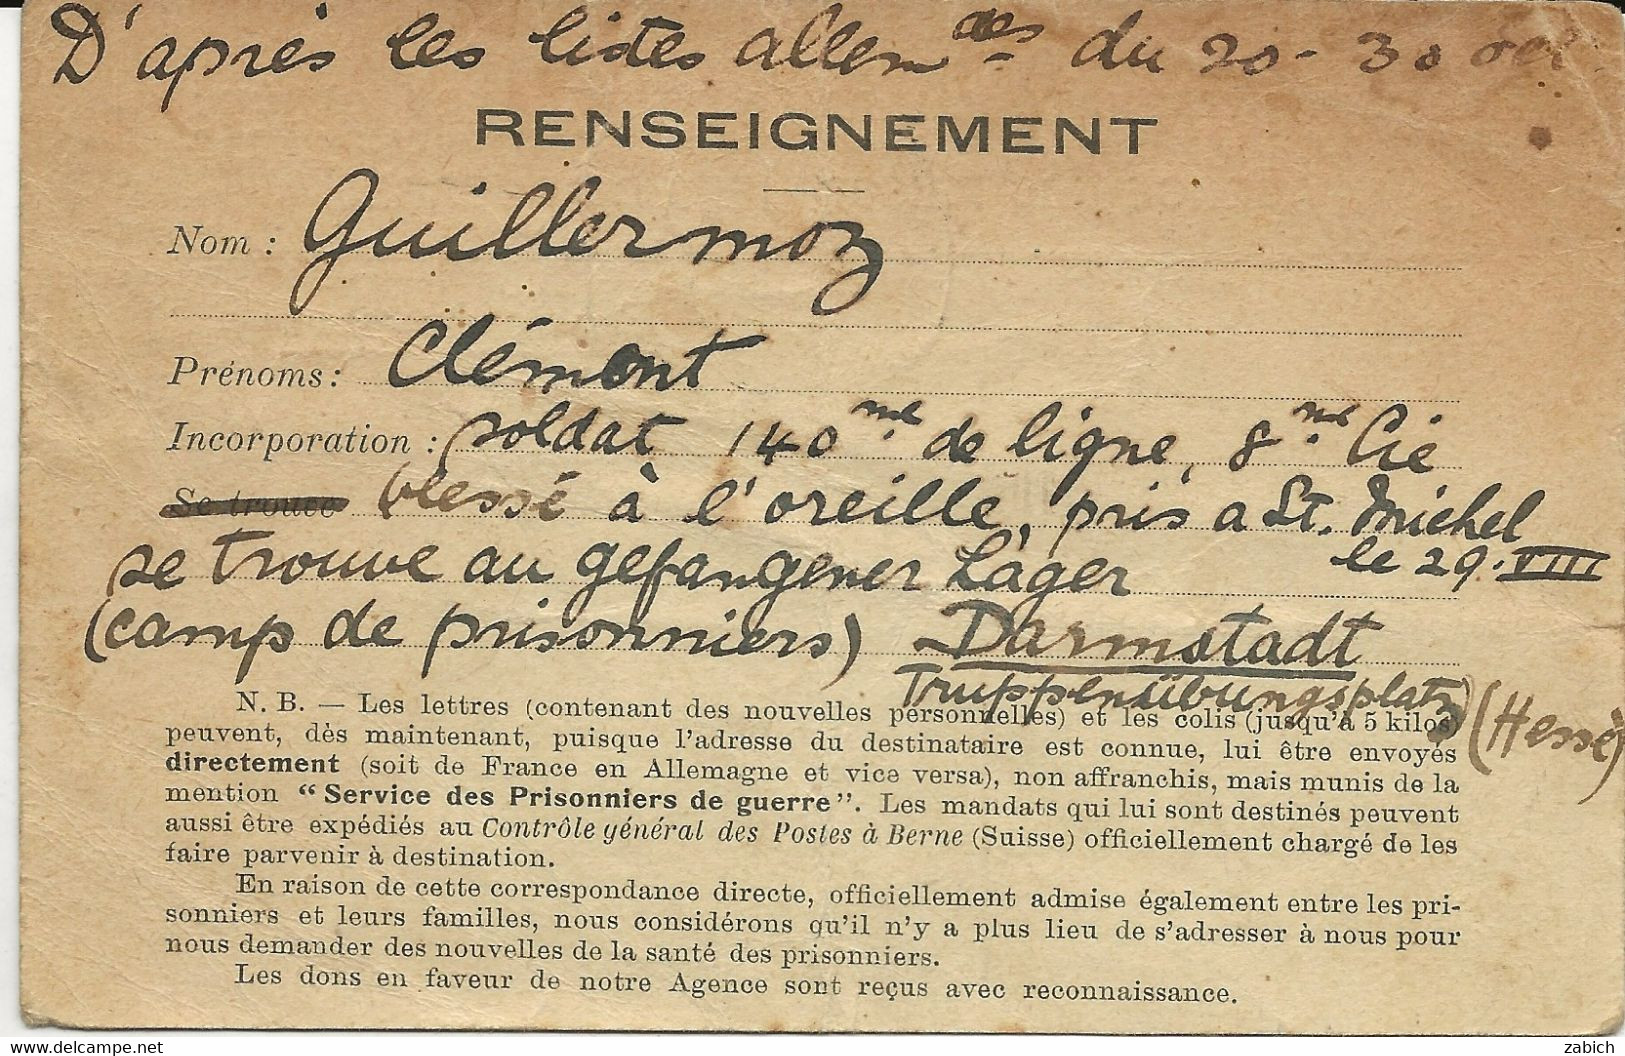 D'après les listes allem des du 20-30 oct.
RENSEIGNEMENT
Nom : Guillermoz
Prénoms : Clément
Incorporation : soldat 140me de ligne, 8me Cie
Se trouve blessé à l'oreille, pris a St. Michel
le 29.VIII
se trouve au gefangener Lager
(camp de prisonniers) Darmstadt
Truppenübungsplatz (Hesse)
N. B. — Les lettres (contenant des nouvelles personnelles) et les colis (jusqu'à 5 kilos)
peuvent, dès maintenant, puisque l'adresse du destinataire est connue, lui être envoyés
directement (soit de France en Allemagne et vice versa), non affranchis, mais munis de la
mention “Service des Prisonniers de guerre”. Les mandats qui lui sont destinés peuvent
aussi être expédiés au Contrôle général des Postes à Berne (Suisse) officiellement chargé de les
faire parvenir à destination.
En raison de cette correspondance directe, officiellement admise également entre les pri-
sonniers et leurs familles, nous considérons qu'il n'y a plus lieu de s'adresser à nous pour
nous demander des nouvelles de la santé des prisonniers.
Les dons en faveur de notre Agence sont reçus avec reconnaissance.
www.delcampe.net
zabich